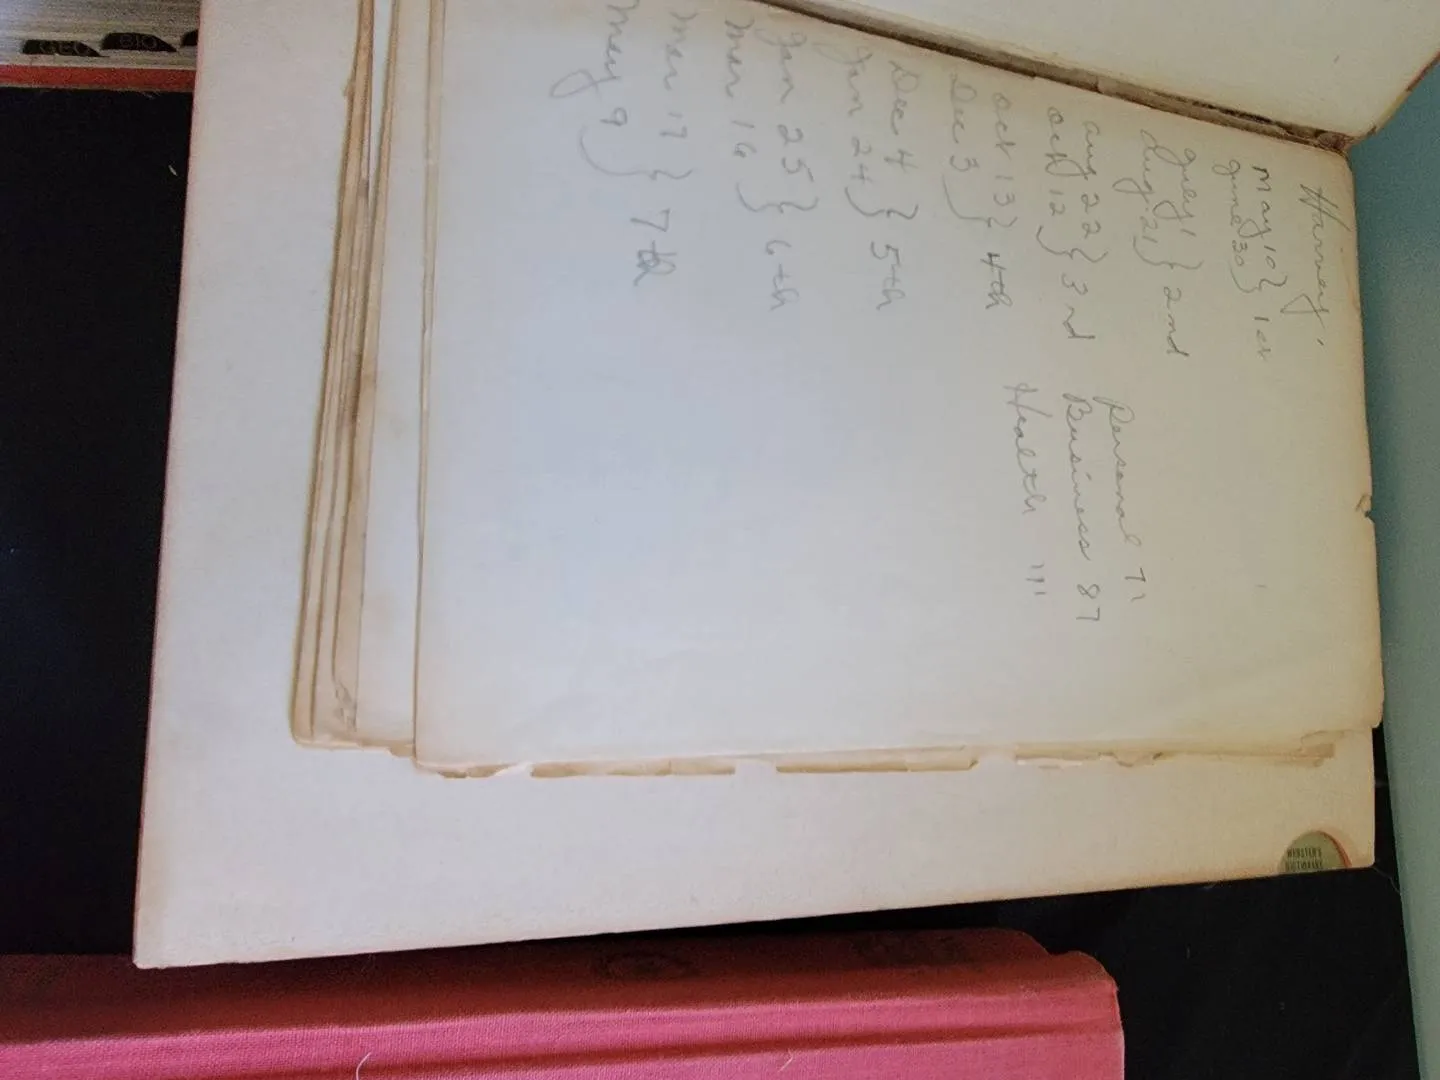 Harvey,
May 10 } 1st
June 30
July 1 } 2nd
Aug 21
Aug 22 } 3rd
Oct 12
Oct 13 } 4th
Dec 3
Dec 4 } 5th
Jan 24
Jan 25 } 6th
Mar 16
Mar 17 } 7th
May 9
Personal 71
Business 87
Health 111
WEBSTER'S
DICTIONARY
GEO
BIO